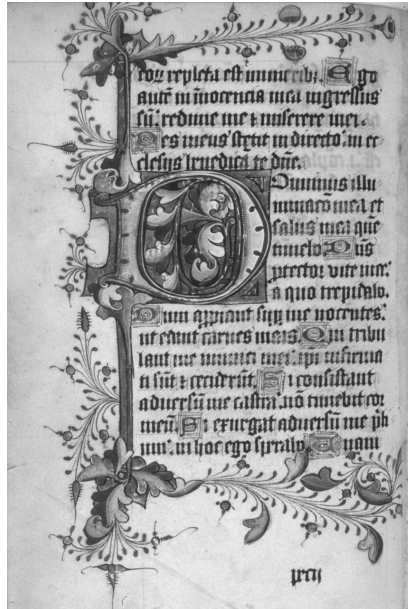 tor repleta est munerib9. Ego
autē in īnocencia mea ingressus
sū: redime me ⁊ miserere mei.
Pes meus stetit in directo: in ec
clesijs benedicā te dn̄e.
Dominus illu
minacō mea et
salus mea quē
timebo Dn̄s
ptector vite mee:
a quo trepidabo.
Dum appiant sup me nocentes:
ut edant carnes meas. Qui tribu
lant me inimici mei: ipi infirma
ti sūt ⁊ ceciderūt. Si consistant
adversū me castra: nō timebit cor
meū. Si exurgat adversū me p̄li
um: in hoc ego sperabo. Unam